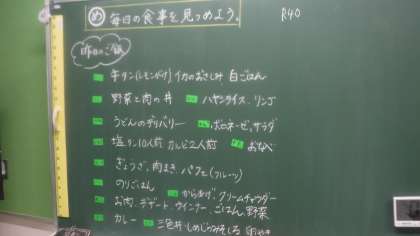 め 毎日の食事を見つめよう。 R40
昨日のご飯
牛タン(レモンがけ) イカのおさしみ 白ごはん
野菜と肉の丼 ハヤシライス、リンゴ
うどんのデリバリー ボロネーゼ、サラダ
塩タン10人前 カルビ2人前 おなべ
ぎょうざ、肉まき、パフェ(フルーツ)
のりごはん からあげ、クリームチャウダー
お肉、デザート、ウインナー、ごはん、野菜
カレー 三色丼、しめじ